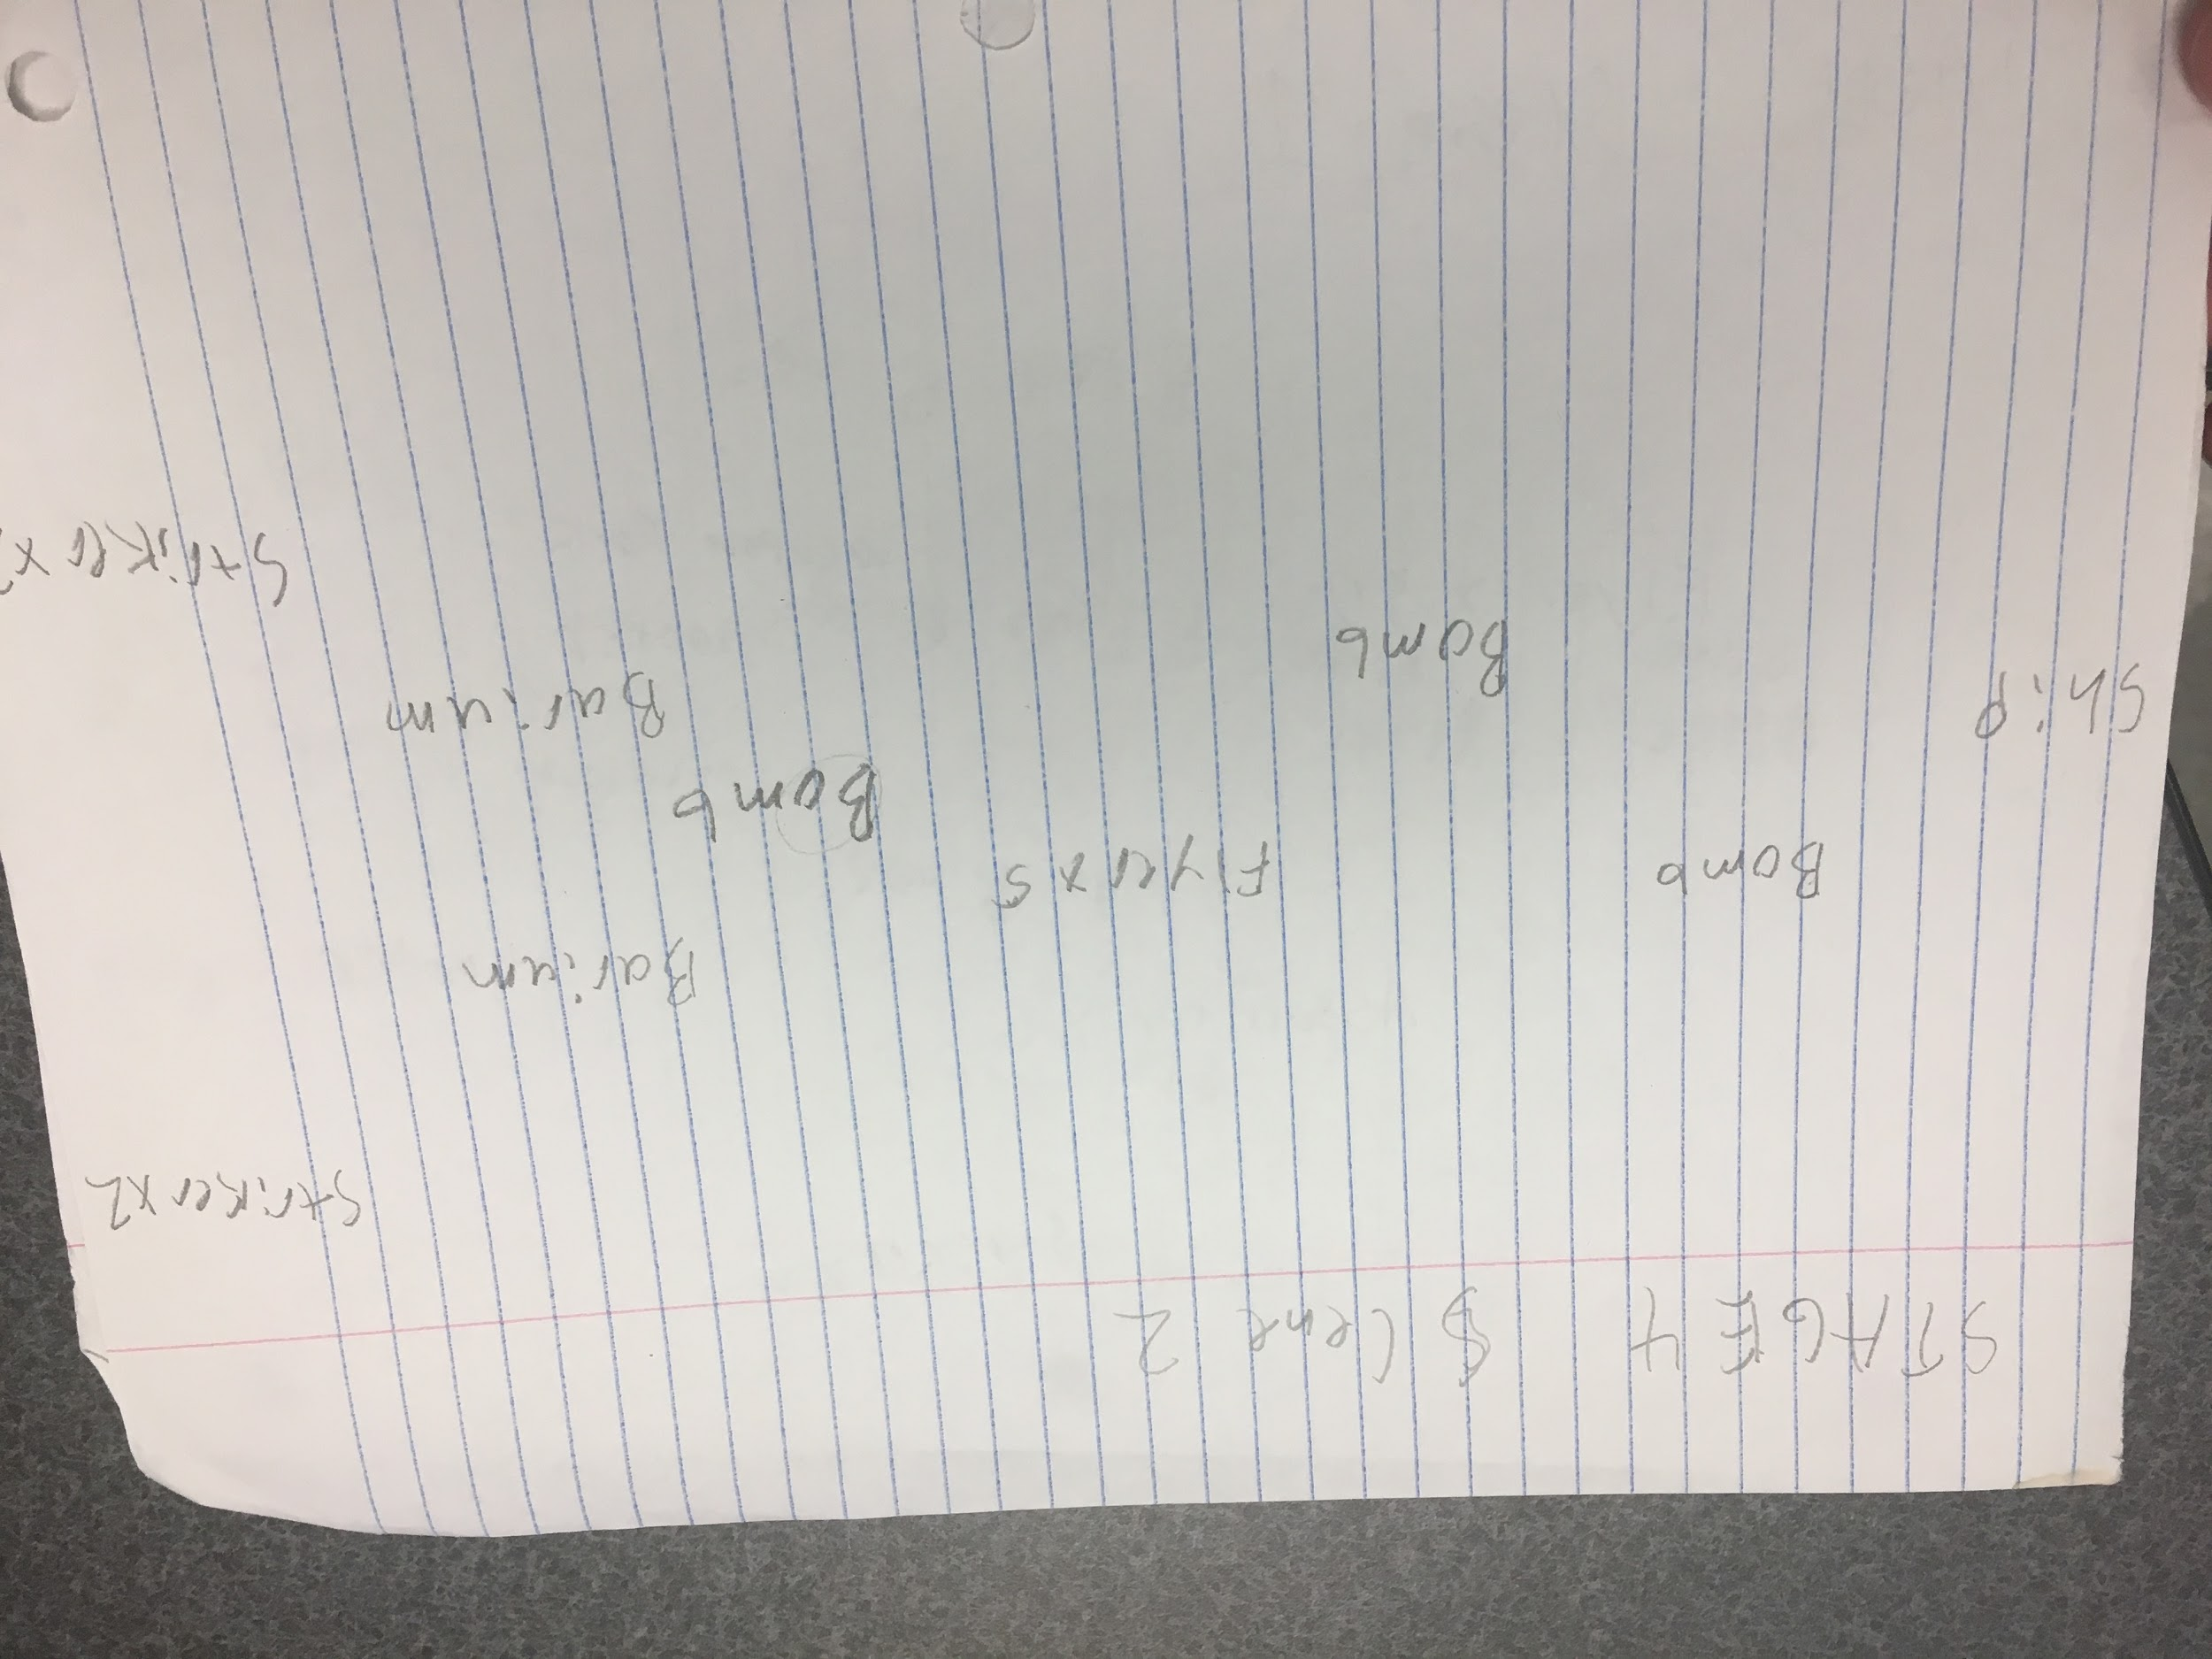 STAGE 4 Scene 2
Striker x2
Barium
Bomb
Flyer x5
Bomb
Barium
Bomb
Ship
Striker x